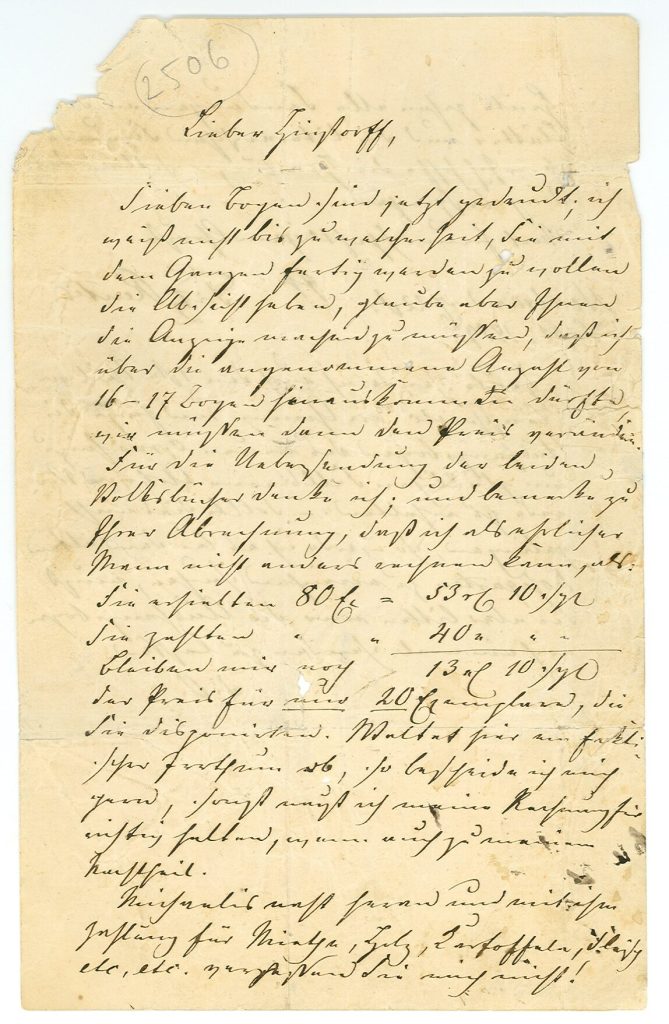 2506
Lieber Hinstorff,
Sieben Bogen sind jetzt gedruckt; ich
weiß nicht bis zu welcher Zeit, Sie mit
dem Ganzen fertig werden zu wollen
die Absicht haben, glaube aber Ihnen
die Anzeige machen zu müßen, daß ich
über die angenommene Anzahl von
16-17 Bogen hinauskommen dürfte,
wir müßen dann den Preis verändern.
Für die Uebersendung der beiden
Volksbücher danke ich; und bemerke zu
Ihrer Abrechnung, daß ich als ehrlicher
Mann nicht anders rechnen kann, als:
Sie erhielten 80 Ex = 53 rℓ 10 sgl
Sie zahlten " " 40 " " "
bleiben mir noch 13 rℓ 10 sgl
der Preis für nur 20 Exemplare, die
Sie disponirten. Waltet hier ein fakti-
scher Irrthum ob, so bescheide ich mich
gern, sonst muß ich meine Rechnung für
richtig halten, wenn auch zu meinem
Nachtheil.
Michaelis naht heran und mit ihm
Zahlung für Miethe, Holz, Kartoffeln, Fleisch
etc, etc. vergessen Sie mich nicht!